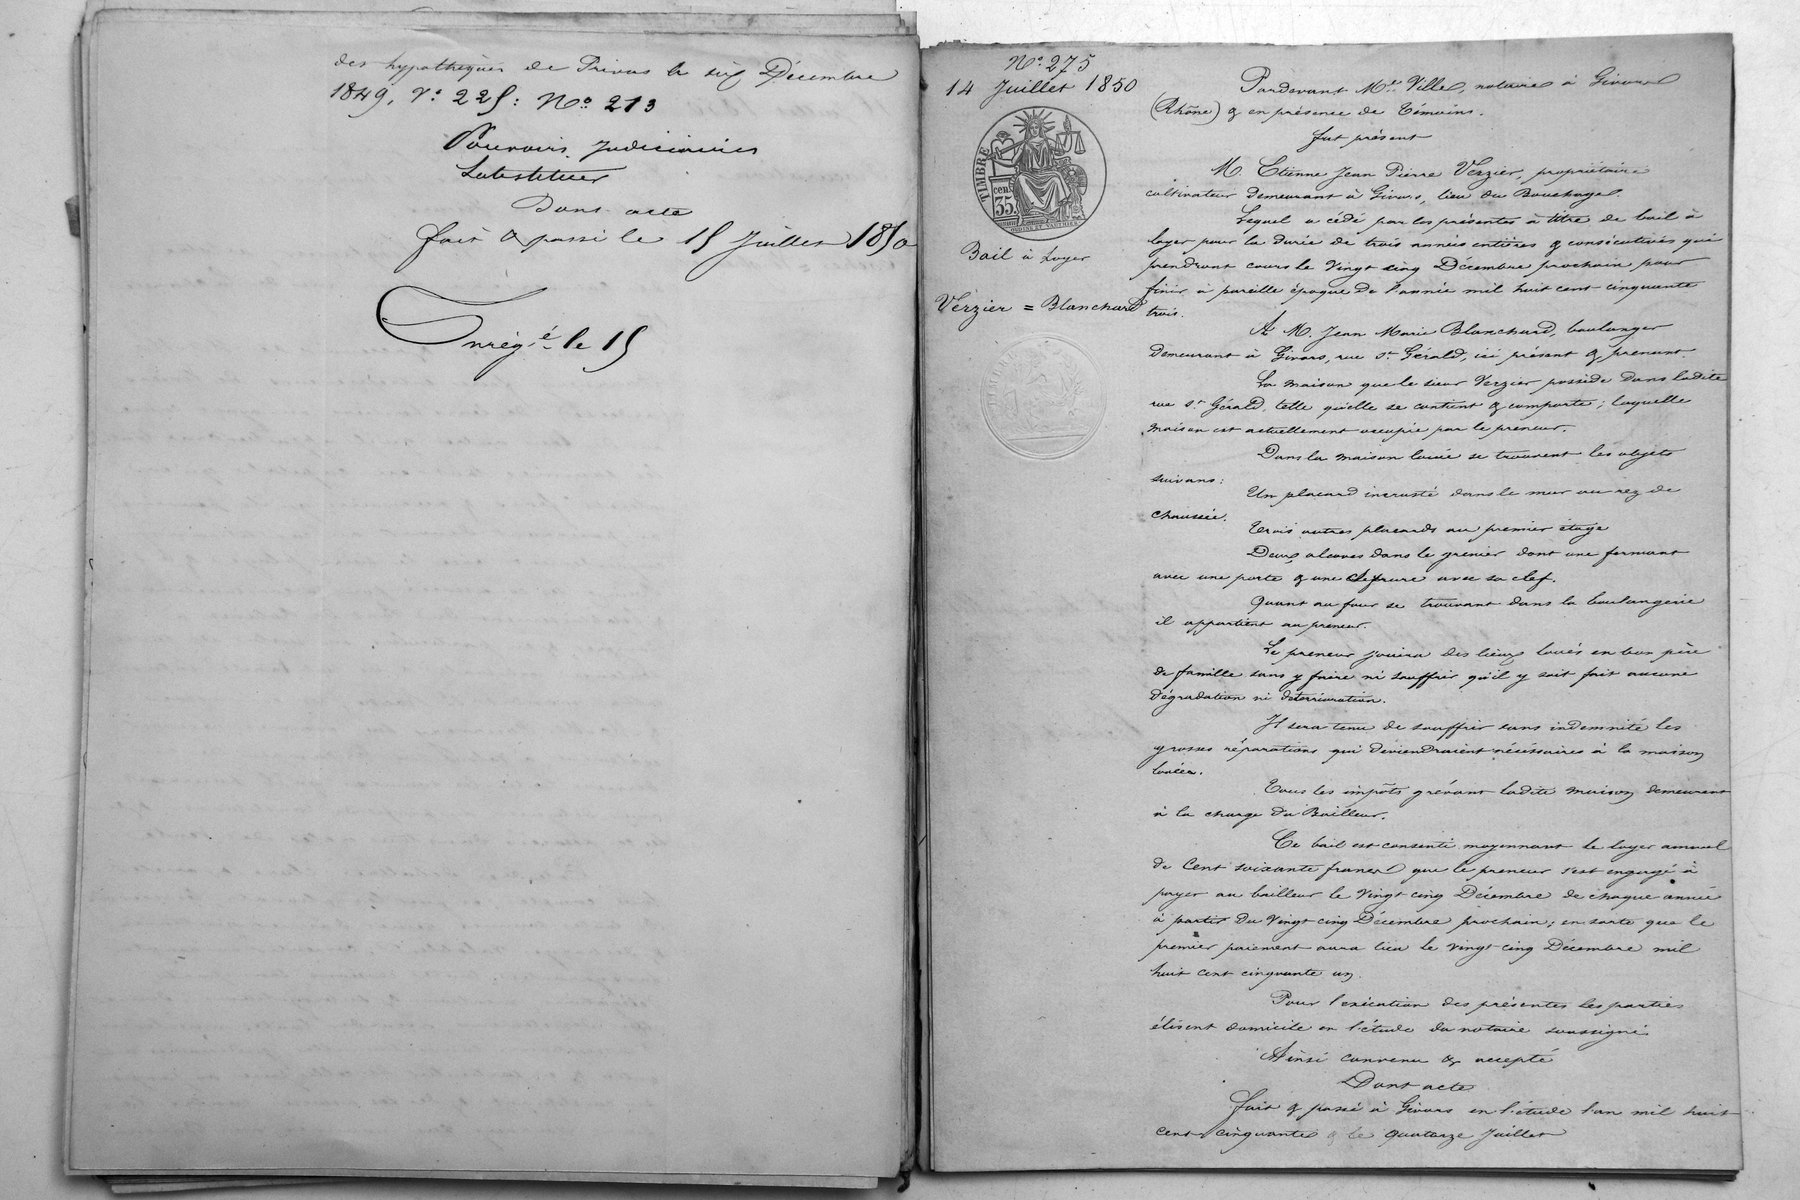 des hypothèques de Privas le six Décembre
1849, Vº 225: Nº 213
Pouvoirs Judiciaires
Substituer
Dont acte
fait & passé le 15 Juillet 1850
Enregé le 15
Nº 275
14 Juillet 1850
TIMBRE
cent. 35.
Bail à Loyer
Verzier = Blanchard
Pardevant Me Ville, notaire à Givors
(Rhône) & en présence de Témoins.
fut présent
M. Etienne Jean Pierre Verzier, propriétaire
cultivateur demeurant à Givors, lieu du Bouchage.
Lequel a cédé par les présentes à titre de bail à
loyer pour la durée de trois années entières & consécutives qui
prendront cours le vingt cinq Décembre prochain pour
finir à pareille époque de l'année mil huit cent cinquante
trois.
A M. Jean Marie Blanchard, boulanger
Demeurant à Givors, rue St Gérald, ici présent & prenant.
La maison que le sieur Verzier possède dans ladite
rue St Gérald, telle qu'elle se contient & comporte; laquelle
maison est actuellement occupée par le preneur.
Dans la maison louée se trouvent les objets
suivans:
Un placard incrusté dans le mur au rez de
chaussée.
Trois autres placards au premier étage
Deux alcoves dans le grenier dont une fermant
avec une porte & une serrure avec sa clef.
Quant au four se trouvant dans la boulangerie
il appartient au preneur.
Le preneur jouira des lieux loués en bon père
de famille sans y faire ni souffrir qu'il y soit fait aucune
dégradation ni détérioration.
Il sera tenu de souffrir sans indemnité les
grosses réparations qui deviendraient nécéssaires à la maison
louée.
Tous les impôts grévant ladite maison demeurent
à la charge du Bailleur.
Ce bail est consenti moyennant le loyer annuel
de Cent soixante francs que le preneur s'est engagé à
payer au bailleur le vingt cinq Décembre de chaque année
à partir du vingt cinq Décembre prochain; en sorte que le
premier paiement aura lieu le vingt cinq Décembre mil
huit cent cinquante un.
Pour l'exécution des présentes les parties
élisent domicile en l'étude du notaire soussigné
Ainsi convenu & accepté
Dont acte
fait & passé à Givors en l'étude l'an mil huit
cent cinquante & le quatorze Juillet